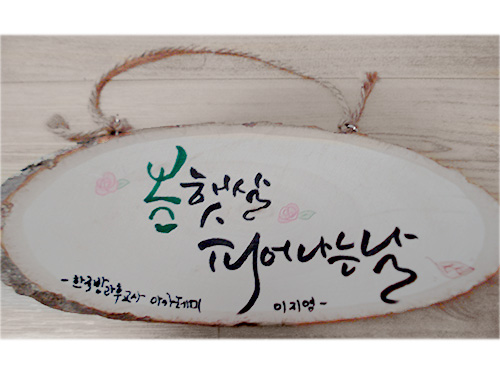 봄햇살
피어나는날
-한국방과후교사 아카데미
이지영-